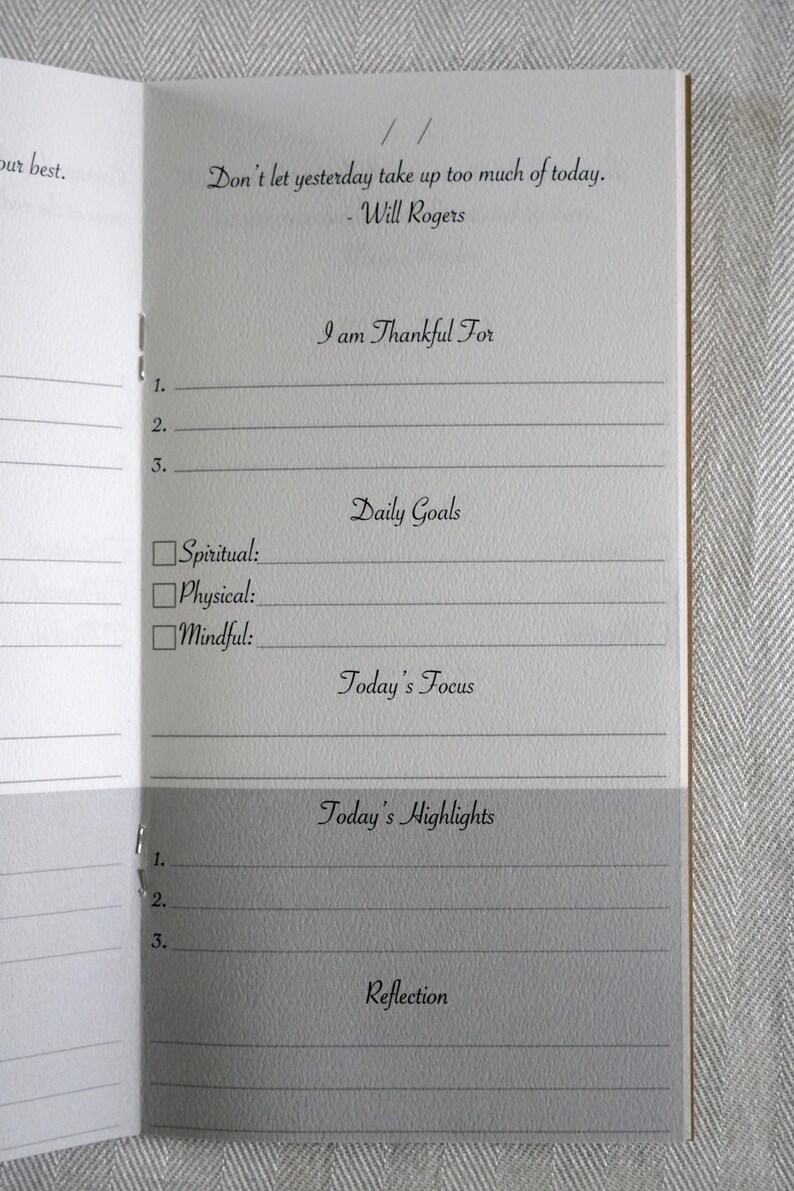 our best.
/ /
Don't let yesterday take up too much of today.
- Will Rogers
I am Thankful For
1.
2.
3.
Daily Goals
Spiritual:
Physical:
Mindful:
Today's Focus
Today's Highlights
1.
2.
3.
Reflection